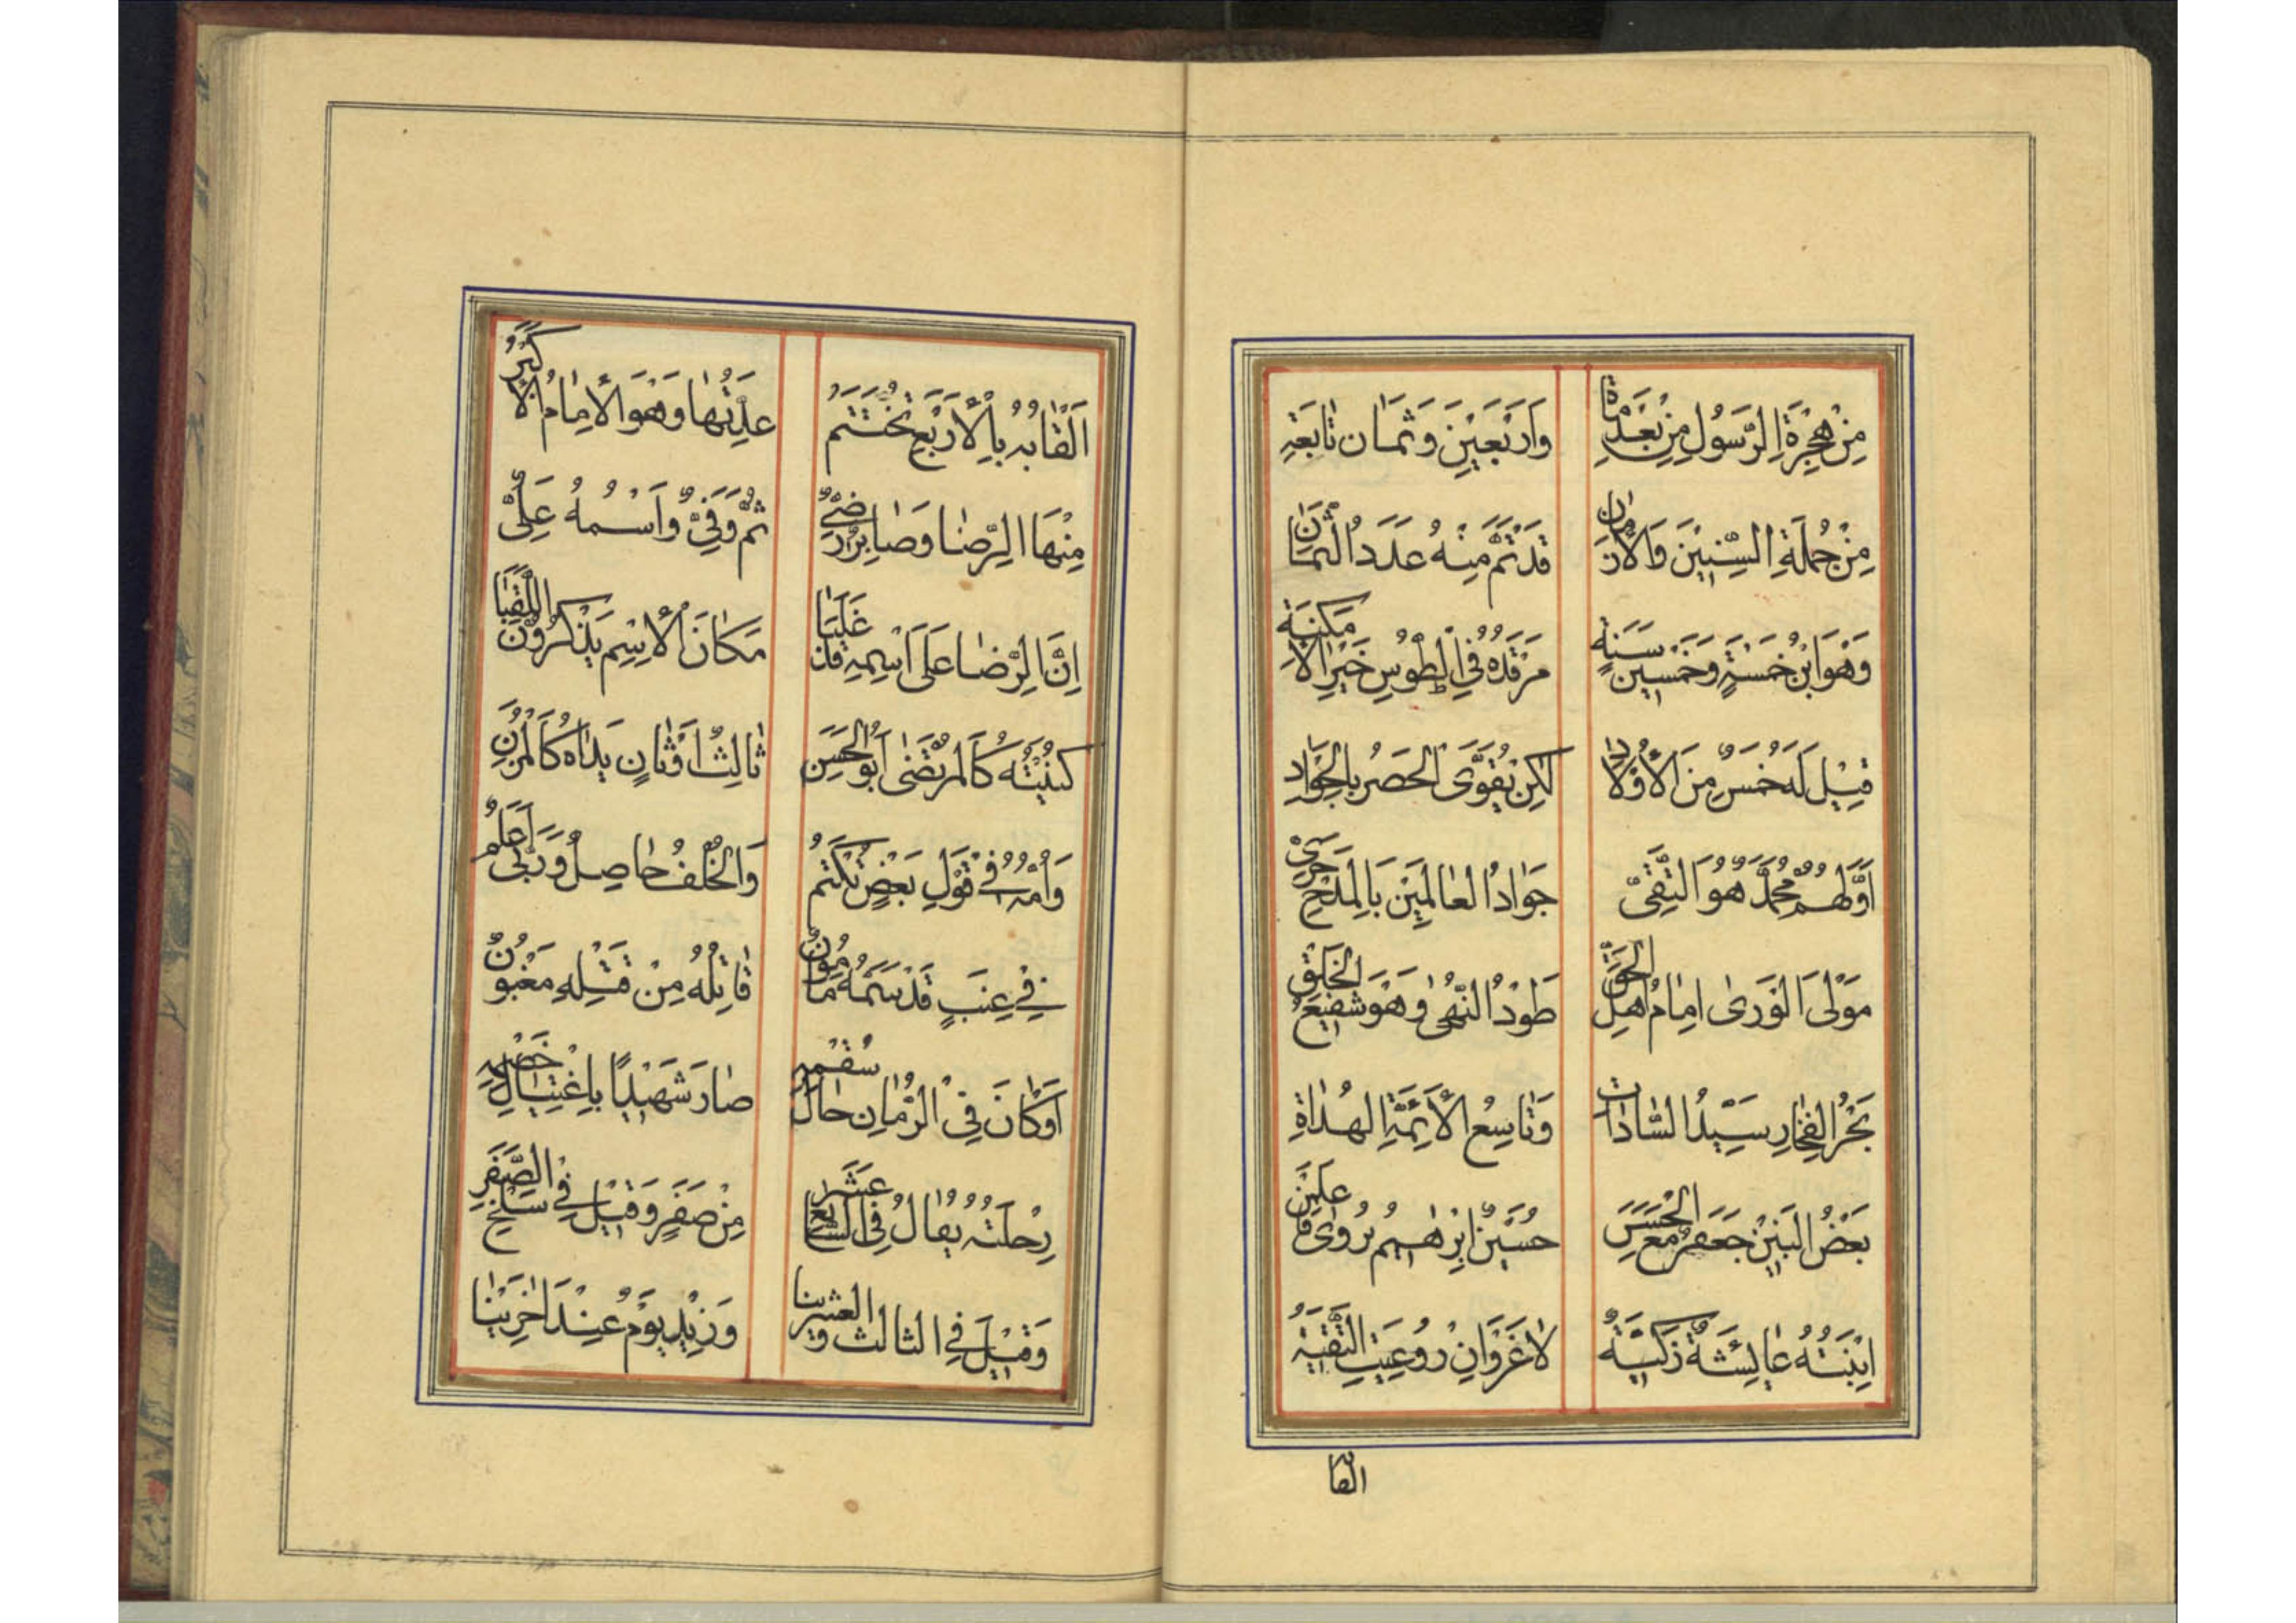 مِنْ هِجْرَةِ الرَّسُولِ مِنْ بَعْدِ مِائَة وَاَرْبَعِيْنَ وَثَمَان تَابَعَتِهِ
مِنْ جُمْلَةِ السِّنِيْنَ وَالْاَزْمَانِ قَدْ تَمَّ مِنْهُ عَدَدُ الثَّمَانِ
وَهْوَ ابْنُ خَمْسَةٍ وَخَمْسِيْنَ سَنَةٍ مَرْقَدُهُ فِي الطُّوْسِ خَيْرِ الْاَمْكِنَةِ
قِيْلَ لَهُ خَمْسٌ مِنَ الْاَوْلَادِ لٰكِنْ يُقَوَّى الْحَصْرُ بِالْجَوَادِ
اَوَّلُهُمْ مُحَمَّدٌ هُوَ التَّقِيّ جَوَادُ الْعَالَمِيْنَ بِالْمَدْحِ حَرِيّ
مَوْلَى الْوَرٰى اِمَامُ اَهْلِ الْحَقِّ طَوْدُ النُّهٰى وَهْوَ شَفِيْعُ الْخَلْقِ
بَحْرُ الْفَخَارِ سَيِّدُ السَّادَات وَتَاسِعُ الْاَئِمَّةِ الْهُدَاةِ
بَعْضُ الْبَنِيْنَ جَعْفَرٌ مَعَ الْحَسَنِ حُسَيْنٌ اِبْرٰهِيْمُ يُرْوٰى
اِبْنَتُهُ عَايِشَةٌ زَكِيَّةٌ لَا غَرْوَ اِنْ رُوْعِيَتِ التَّقِيَّةُ
القابه
اَلْقَابُهُ بِالْاَرْبَعِ تُخْتَتَمُ عِدَّتُهَا وَهْوَ الْاِمَامُ الْاَكْبَرُ
مِنْهَا الرِّضَا وَصَابِرٌ رَضِيٌّ ثُمَّ وَفِيٌّ وَاسْمُهُ عَلِيٌّ
اِنَّ الرِّضَا عَلَى اسْمِهِ قَدْ غَلَبَا مَكَانَ الْاِسْمِ يَذْكُرُوْنَ اللَّقَبَا
كُنْيَتُهُ كَالْمُرْتَضٰى اَبُو الْحَسَنِ ثَالِثُ اَوْثَانٍ يَدَاهُ كَالْمُزْنِ
وَاُمُّهُ فِي قَوْلِ بَعْضٍ تُكْتَمُ وَالْخُلْفُ حَاصِلٌ وَرَبِّي اَعْلَمُ
فِي عِنَبٍ قَدْ سَمَّهُ مَامُوْنُ قَاتِلُهُ مِنْ قَتْلِهِ مَغْبُوْنُ
اَوْ كَانَ فِي الرُّمَانِ حَالَ سُقْمِهِ صَارَ شَهِيْدًا بِاغْتِيَالِ خَصْمِهِ
رِحْلَتُهُ يُقَالُ فِي السَّابِعِ عَشَر مِنْ صَفَرٍ وَقِيْلَ فِي سَلْخِ الصَّفَرِ
وَقِيْلَ فِي الثالث والعشرينا وَزِيْدَ يَوْمٌ عِنْدَ اٰخَرِيْنَا